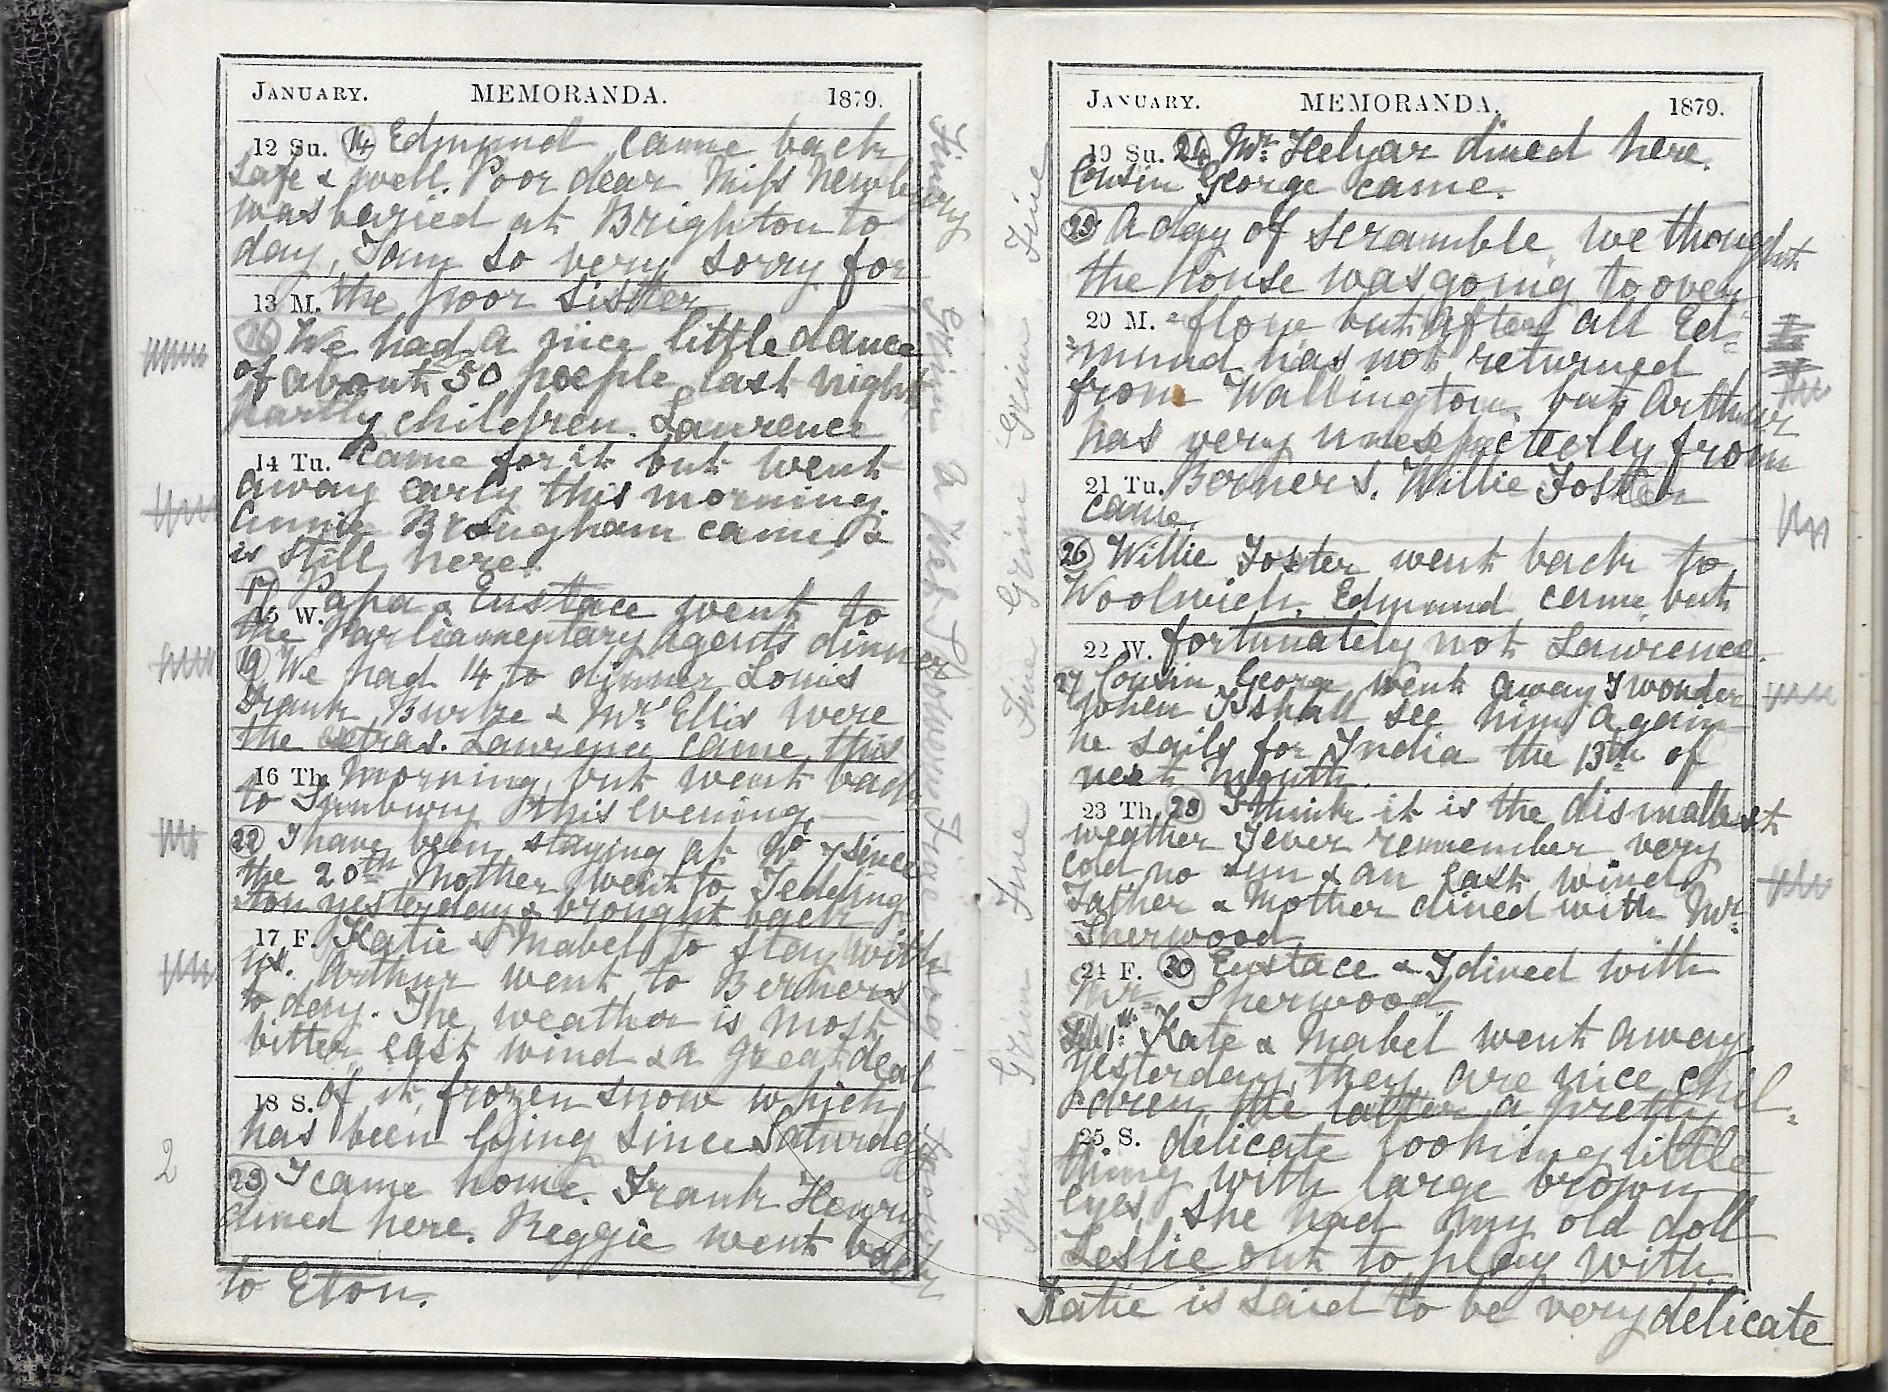 JANUARY. MEMORANDA. 1879.
12 Su. 14 Edmund came back
safe & well. Poor dear Miss Newbery
was buried at Brighton to
day, I am so very sorry for
13 M. the poor sister
16 We had a nice little dance
of about 50 poeple last night
partly children. Lawrence
14 Tu. came for it but went
away early this morning.
Annie Brougham came &
is still here.
17 Papa & Eustace went to
15 W. the Parliamentary Agents dinner
19 We had 14 to dinner Louis
Frank, Burke & Mrs Ellis were
the extras. Lawrence came this
16 Th. morning, but went back
to Sunbury this evening.
22 I have been staying at No 7 since
the 20th Mother went to Tedding
ton yesterday & brought back
17 F. Katie & Mabel to stay with
us. Arthur went to Berners
to day. The weather is most
bitter east wind & a great deal
18 S. of it, frozen snow which
has been lying since Saturday
2
23 I came home. Frank Henry
dined here. Reggie went back
to Eton.
JANUARY. MEMORANDA. 1879.
19 Su. 24 Mr Helyar dined here.
Cousin George came.
25 A day of scramble, we thought
the house was going to over
20 M. =flow but after all Ed=
=mund has not returned
from Wallington, but Arthur
has very unexpectedly from
21 Tu. Berners. Willie Foster
came.
26 Willie Foster went back to
Woolwich. Edmund came but
22 W. fortunately not Lawrence.
27 Cousin George went away I wonder
when I shall see him again
he sails for India the 13th of
next month.
23 Th. 28 I think it is the dismallest
weather I ever remember very
cold no sun & an east wind
Father & Mother dined with Mr
Sherwood
24 F. 30 Eustace & I dined with
Mr Sherwood.
Feb 1st Kate & Mabel went away
yesterday, they are nice chil=
=dren, the latter a pretty
25 S. delicate looking little
thing with large brown
eyes, she had my old doll
Leslie out to play with
Katie is said to be very delicate
Grim Grim Fine Fine Grim Grim Fine